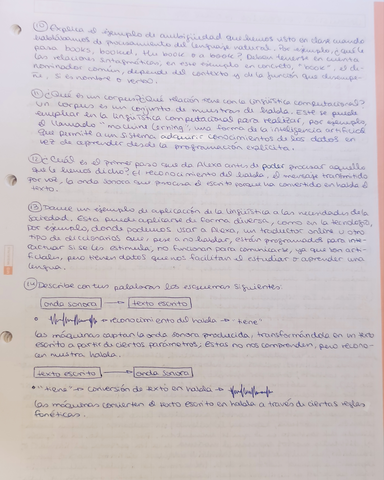 ⑩ Explica el ejemplo de ambigüedad que hemos visto en clase cuando
hablábamos de procesamiento del lenguaje natural. Por ejemplo, ¿qué le
pasa books, booked, the book o a book? Deben tenerse en cuenta
las relaciones sintagmáticas, en este ejemplo en concreto, "book", el de-
nominador común, depende del contexto y de la función que desempe-
ñe, si es nombre o verbo.
⑪ ¿Qué es un corpus? ¿Qué relación tiene con la lingüística computacional?
un corpus es un conjunto de muestras de habla. Este se puede
emplear en la lingüística computacional para realizar, por ejemplo,
el llamado "machine learning": una forma de la inteligencia artificial
que permite a un sistema adquirir conocimientos de los datos en
vez de aprender desde la programación explícita.
⑫ ¿Cuál es el primer paso que da Alexa antes de poder procesar aquello
que le hemos dicho? El reconocimiento del habla, el mensaje transmitido
por voz, la onda sonora que procesa el escrito para que convertido en habla el
texto.
⑬ Dame un ejemplo de aplicación de la lingüística a las necesidades de la
sociedad. Esta puede aplicarse de forma diversa, como en la tecnología,
por ejemplo, donde podemos usar a Alexa, un traductor online u otro
tipo de diccionarios que, pese a no hablar, están programados para inte-
ractuar si se les estimula, no funcionan para comunicarse, ya que son arti-
ficiales, pero tienen datos que nos facilitan el estudiar o aprender una
lengua.
⑭ Describe con tus palabras los esquemas siguientes:
onda sonora → texto escrito
• → reconocimiento del habla → "tiene"
Las máquinas captan la onda sonora producida, transformándola en un texto
escrito a partir de ciertos parámetros; Estas no nos comprenden, pero recono-
cen nuestra habla.
texto escrito → onda sonora
• "tiene" → conversión de texto en habla →
Las máquinas convierten el texto escrito en habla a través de ciertas reglas
fonéticas.